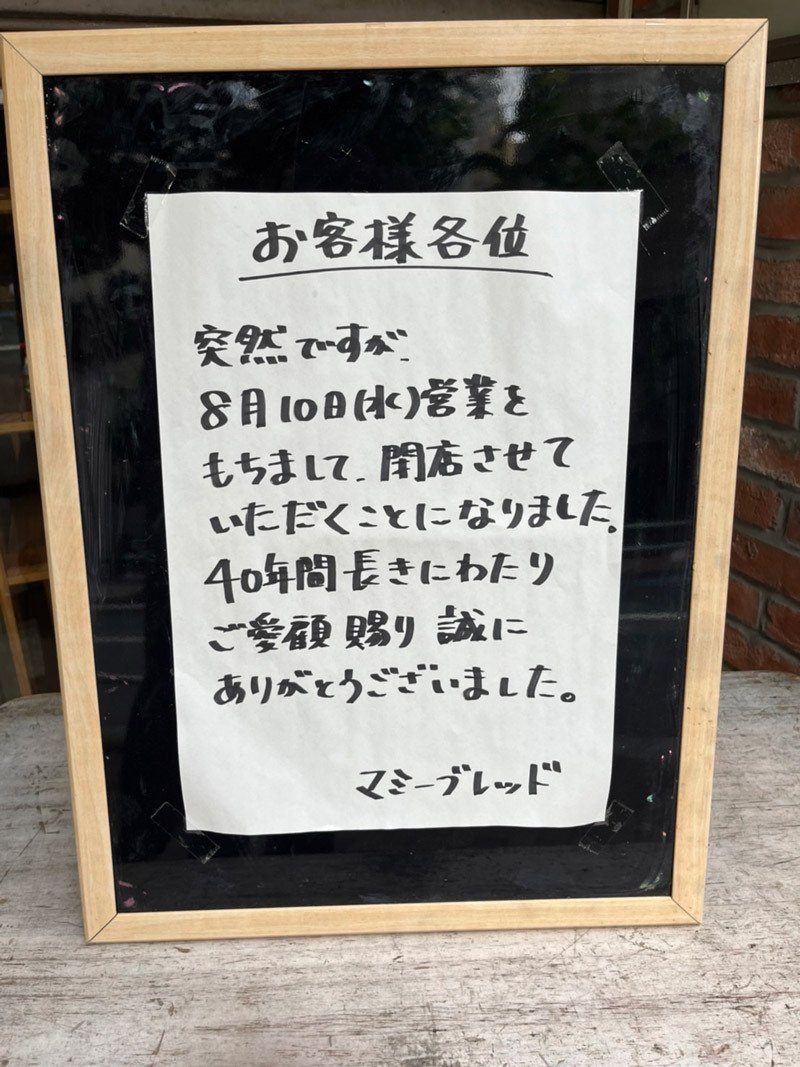 お客様各位
突然ですが、
8月10日(水)営業を
もちまして、閉店させて
いただくことになりました。
40年間長きにわたり
ご愛顧賜り誠に
ありがとうございました。
マミーブレッド